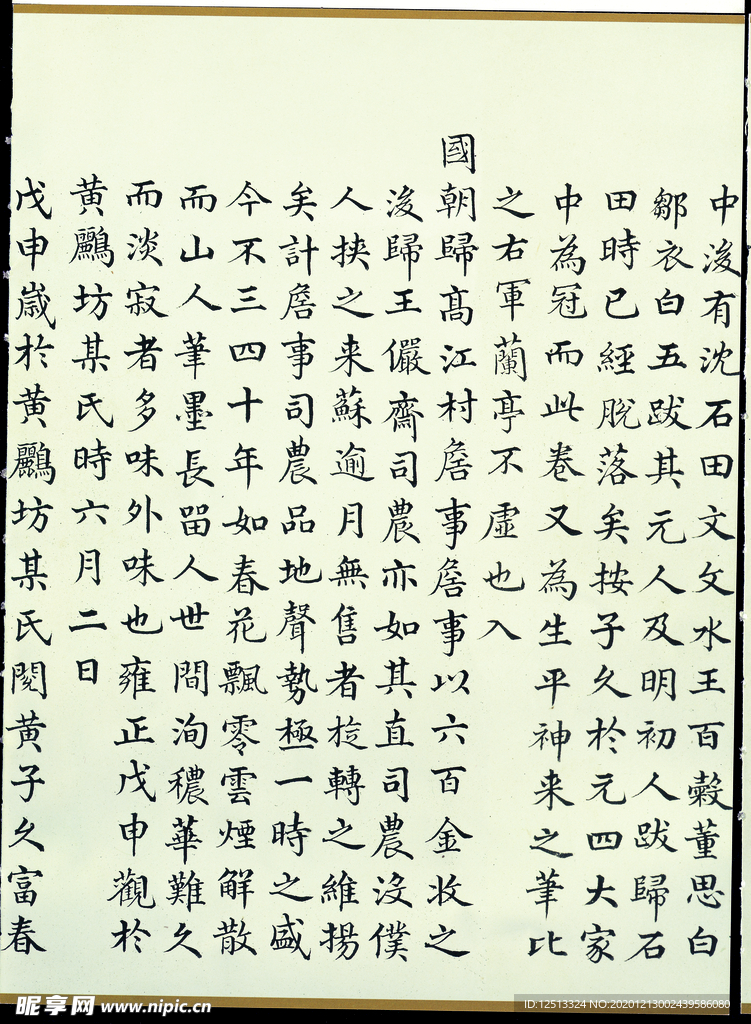 中後有沈石田文文水王百穀董思白
鄒衣白五跋其元人及明初人跋歸石
田時已經脫落矣按子久於元四大家
中為冠而此卷又為生平神来之筆比
之右軍蘭亭不虛也入
國朝歸高江村詹事詹事以六百金收之
後歸王儼齋司農亦如其直司農沒僕
人挟之来蘇逾月無售者旋轉之維揚
矣計詹事司農品地聲勢極一時之盛
今不三四十年如春花飄零雲煙解散
而山人筆墨長留人世間洵穠華難久
而淡寂者多味外味也雍正戊申觀於
黃鸝坊某氏時六月二日
戊申歲於黃鸝坊某氏閱黃子久富春
昵享网 www.nipic.cn
ID:12513324 NO:20201213002439586080